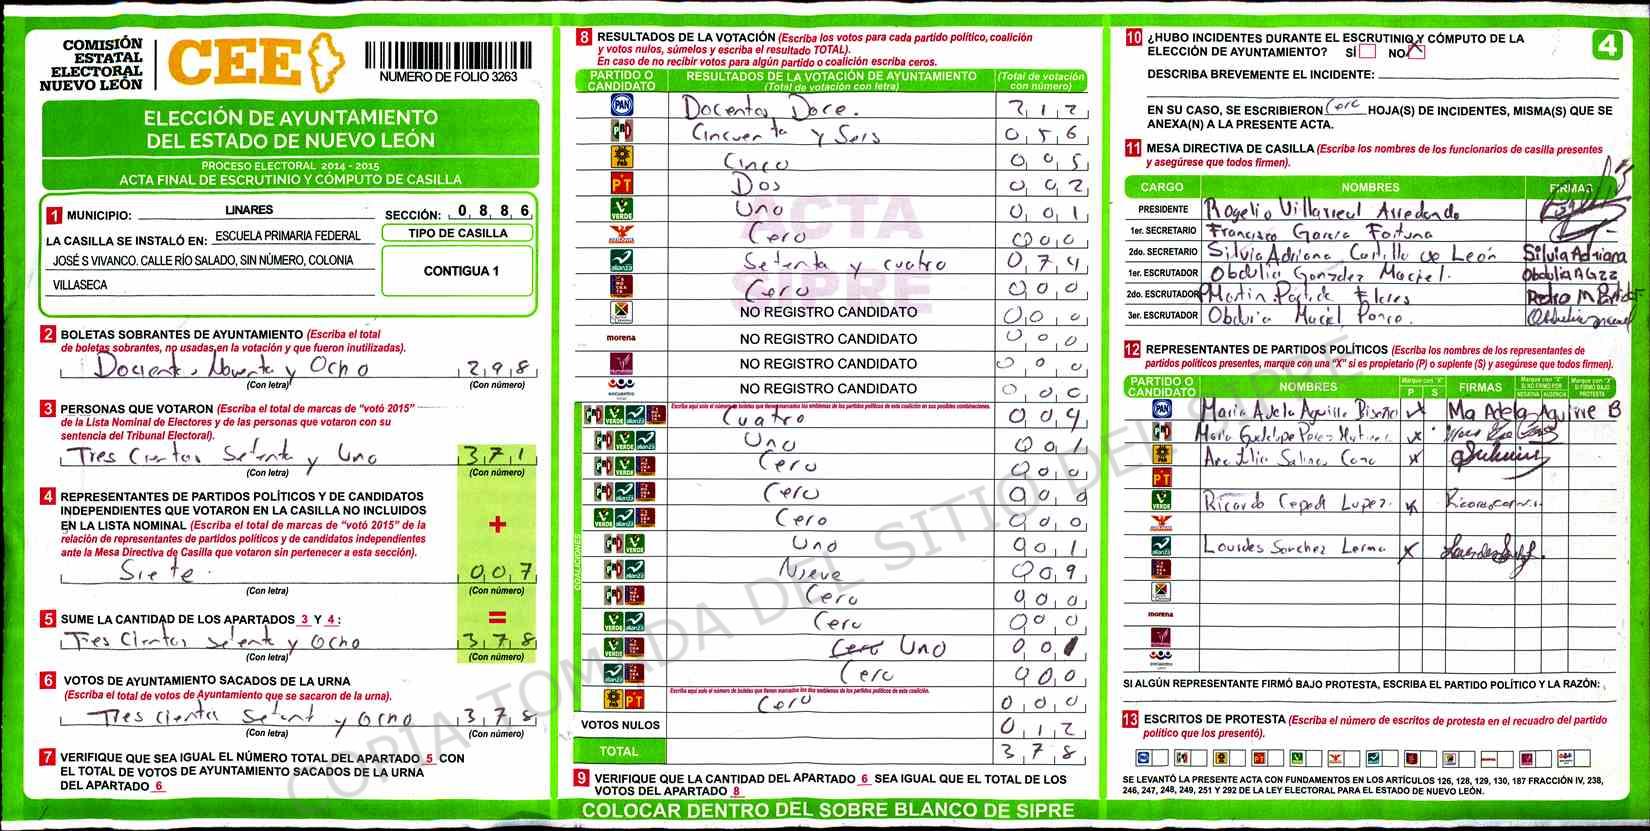 COMISIÓN
ESTATAL
ELECTORAL
NUEVO LEÓN
CEE
NUMERO DE FOLIO 3263
ELECCIÓN DE AYUNTAMIENTO
DEL ESTADO DE NUEVO LEÓN
PROCESO ELECTORAL 2014 - 2015
ACTA FINAL DE ESCRUTINIO Y CÓMPUTO DE CASILLA
1 MUNICIPIO: LINARES SECCIÓN: 0 8 8 6
LA CASILLA SE INSTALÓ EN: ESCUELA PRIMARIA FEDERAL
JOSÉ S VIVANCO. CALLE RÍO SALADO, SIN NÚMERO, COLONIA
VILLASECA
TIPO DE CASILLA
CONTIGUA 1
2 BOLETAS SOBRANTES DE AYUNTAMIENTO (Escriba el total
de boletas sobrantes, no usadas en la votación y que fueron inutilizadas).
Noventa y Ocho 2 9 8
(Con letra) (Con número)
3 PERSONAS QUE VOTARON (Escriba el total de marcas de “votó 2015”
de la Lista Nominal de Electores y de las personas que votaron con su
sentencia del Tribunal Electoral).
Tres Cientos Setenta y Uno 3 7 1
(Con letra) (Con número)
4 REPRESENTANTES DE PARTIDOS POLÍTICOS Y DE CANDIDATOS
INDEPENDIENTES QUE VOTARON EN LA CASILLA NO INCLUIDOS
EN LA LISTA NOMINAL (Escriba el total de marcas de “votó 2015” de la
relación de representantes de partidos políticos y de candidatos independientes
ante la Mesa Directiva de Casilla que votaron sin pertenecer a esta sección).
+
Siete 0 0 7
(Con letra) (Con número)
=
5 SUME LA CANTIDAD DE LOS APARTADOS 3 Y 4:
Tres Cientos Setenta y Ocho 3 7 8
(Con letra) (Con número)
6 VOTOS DE AYUNTAMIENTO SACADOS DE LA URNA
(Escriba el total de votos de Ayuntamiento que se sacaron de la urna).
Tres cientos Setent y Ocho 3 7 8
(Con letra) (Con número)
7 VERIFIQUE QUE SEA IGUAL EL NÚMERO TOTAL DEL APARTADO 5 CON
EL TOTAL DE VOTOS DE AYUNTAMIENTO SACADOS DE LA URNA
DEL APARTADO 6
8 RESULTADOS DE LA VOTACIÓN (Escriba los votos para cada partido político, coalición
y votos nulos, súmelos y escriba el resultado TOTAL).
En caso de no recibir votos para algún partido o coalición escriba ceros.
PARTIDO O CANDIDATO RESULTADOS DE LA VOTACIÓN DE AYUNTAMIENTO (Total de votación con letra) (Total de votación con número)
PAN Docentos Doce. 2 1 2
PRI Cincuenta y Seis 0 5 6
PRD Cinco 0 0 5
PT Dos 0 0 2
VERDE Uno 0 0 1
Cero 0 0 0
alianza Setenta y cuatro 0 7 4
Cero 0 0 0
NO REGISTRO CANDIDATO 0 0 0
morena NO REGISTRO CANDIDATO 0 0 0
NO REGISTRO CANDIDATO 0 0 0
encuentro NO REGISTRO CANDIDATO 0 0 0
COALICIONES
Escriba aquí solo el número de boletas que tienen marcados los emblemas de los partidos políticos de esta coalición en sus posibles combinaciones.
Cuatro 0 0 4
Uno 0 0 1
Cero 0 0 0
Cero 0 0 0
Cero 0 0 0
Uno 0 0 1
Nueve 0 0 9
Cero 0 0 0
Cero 0 0 0
Cero Uno 0 0 1
Cero 0 0 0
Escriba aquí solo el número de boletas que tienen marcados los dos emblemas de los partidos políticos de esta coalición.
Cero 0 0 0
VOTOS NULOS 0 1 2
TOTAL 3 7 8
9 VERIFIQUE QUE LA CANTIDAD DEL APARTADO 6 SEA IGUAL QUE EL TOTAL DE LOS
VOTOS DEL APARTADO 8
COLOCAR DENTRO DEL SOBRE BLANCO DE SIPRE
ACTA
SIPRE
COPIA TOMADA DEL SITIO DEL SIPRE
10 ¿HUBO INCIDENTES DURANTE EL ESCRUTINIO Y CÓMPUTO DE LA
ELECCIÓN DE AYUNTAMIENTO? SÍ NO X
4
DESCRIBA BREVEMENTE EL INCIDENTE:
EN SU CASO, SE ESCRIBIERON Cero HOJA(S) DE INCIDENTES, MISMA(S) QUE SE
ANEXA(N) A LA PRESENTE ACTA.
11 MESA DIRECTIVA DE CASILLA (Escriba los nombres de los funcionarios de casilla presentes
y asegúrese que todos firmen).
CARGO NOMBRES FIRMAS
PRESIDENTE Rogelio Villarreal Arredondo
1er. SECRETARIO Francisco García Fortuna
2do. SECRETARIO Silvia Adriana Castillo de León Silvia Adriana
1er. ESCRUTADOR Obdulia González Maciel. Obdulia AGzz
2do. ESCRUTADOR Martin Flores Pedro M
3er. ESCRUTADOR Obdulia Maciel Ponce.
12 REPRESENTANTES DE PARTIDOS POLÍTICOS (Escriba los nombres de los representantes de
partidos políticos presentes, marque con una “X” si es propietario (P) o suplente (S) y asegúrese que todos firmen).
PARTIDO O CANDIDATO NOMBRES Marque con “X” P S FIRMAS Marque con “X” SI NO FIRMÓ POR NEGATIVA AUSENCIA Marque con “X” SI FIRMÓ BAJO PROTESTA
PAN Maria Adela Aguirre X Ma Adela Aguirre B
Maria Guadalupe Perez X
Ana Julia Salinas Cano X
PT
VERDE Ricardo Cepeda Lopez X
alianza Lourdes Sanchez Lerma X
morena
SI ALGÚN REPRESENTANTE FIRMÓ BAJO PROTESTA, ESCRIBA EL PARTIDO POLÍTICO Y LA RAZÓN:
13 ESCRITOS DE PROTESTA (Escriba el número de escritos de protesta en el recuadro del partido
político que los presentó).
SE LEVANTÓ LA PRESENTE ACTA CON FUNDAMENTOS EN LOS ARTÍCULOS 126, 128, 129, 130, 187 FRACCIÓN IV, 238,
246, 247, 248, 249, 251 Y 292 DE LA LEY ELECTORAL PARA EL ESTADO DE NUEVO LEÓN.